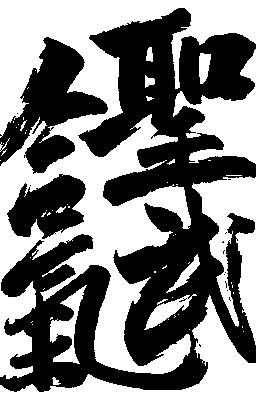 聖武
合氣